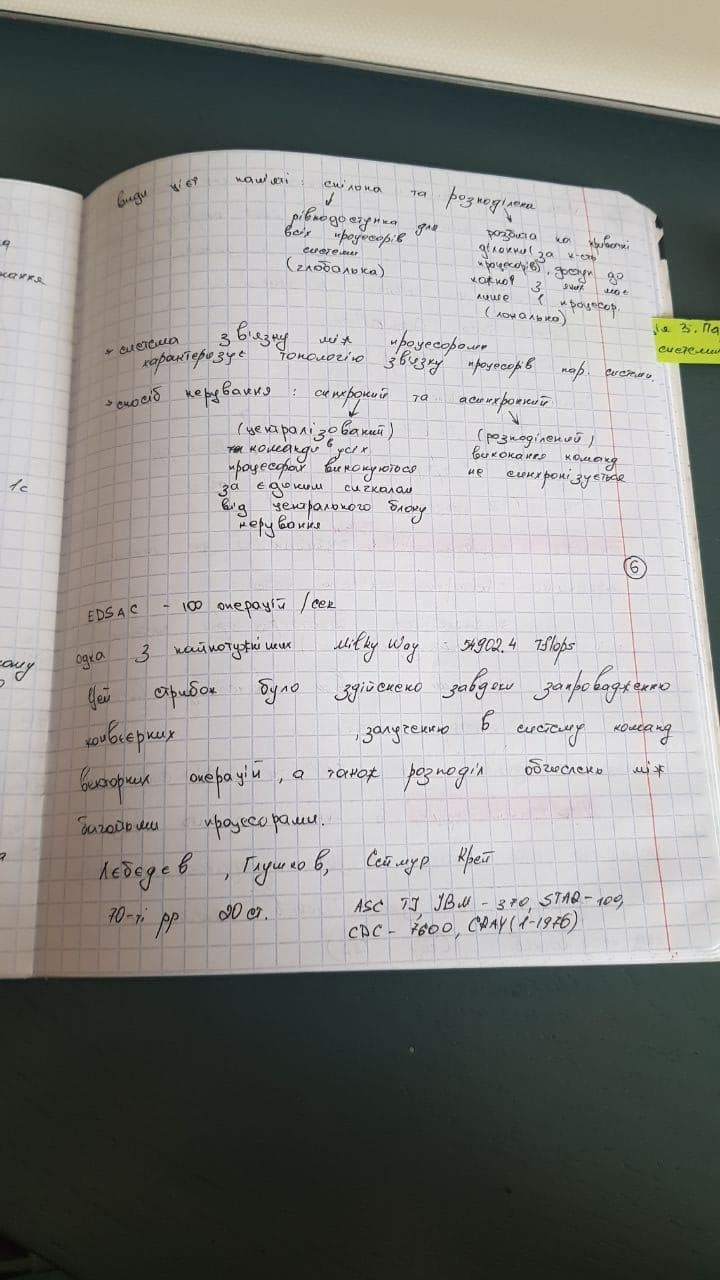 види цієї пам'яті: спільна та розподілена
рівнодоступна для
всіх процесорів
системи
(глобальна)
розбита на приватні
ділянки (за к-стю
процесорів), доступ до
кожної з яких має
лише 1 процесор.
(локально)
* система зв'язку між процесорами
характерозує топологію зв'язку процесорів пар. системи.
* спосіб керування: синхроний та асинхронний
(централізований)
команди в усіх
процесорах виконуються
за єдиним сигналом
від центрального блоку
керування
(розподілений)
виконання команд
не синхронізується
6
EDSAC - 100 операцій/сек
одна з найпотужніших Milky Way : 54902.4 Tflops
Цей стрибок було здійснено завдяки запровадженню
конвєєрних , залученню в систему команд
векторних операцій, а також розподіл обчислень між
багатьми процесорами.
Лєбєдєв, Глушков, Сеймур Крей
70-ті рр 20 ст.
ASC TI, IBM - 370, STAR-100,
CDC - 7600, CRAY (1-1976)
ія 3. Па
системи
1с